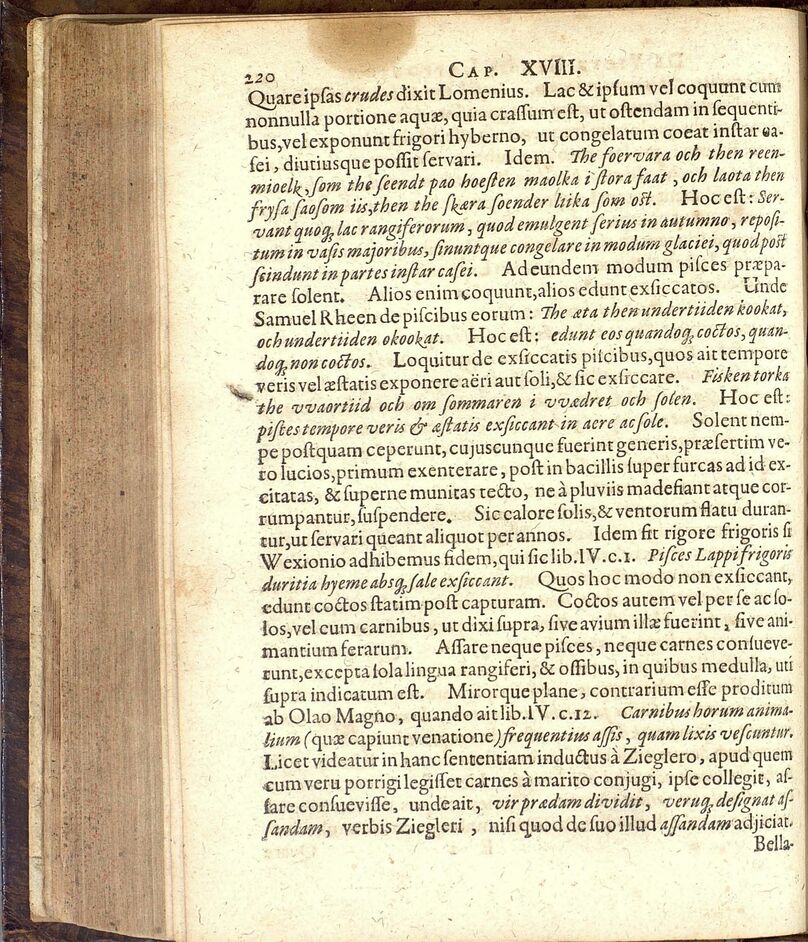 220
CAP. XVIII.
Quare ipſas crudes dixit Lomenius. Lac & ipſum vel coquunt cum
nonnulla portione aquæ, quia craſſum eſt, ut oſtendam in ſequenti-
bus, vel exponunt frigori hyberno, ut congelatum coeat inſtar ca-
ſei, diutiusque poſſit ſervari. Idem. The foervara och then reen-
mioelk, ſom the ſeendt pao hoeſten maolka i ſtora faat, och laota then
fryſa ſaoſom iis, then the ſkæra ſoender liika ſom oſt. Hoc eſt: Ser-
vant quoq; lac rangiferorum, quod emulgent ſerius in autumno, repoſi-
tum in vaſis majoribus, ſinuntque congelare in modum glaciei, quod poſt
ſcindunt in partes inſtar caſei. Ad eundem modum piſces præpa-
rare ſolent. Alios enim coquunt, alios edunt exſiccatos. Unde
Samuel Rheen de piſcibus eorum: The æta then undertiiden kookat,
och undertiiden okookat. Hoc eſt: edunt eos quandoq; coctos, quan-
doq; non coctos. Loquitur de exſiccatis piſcibus, quos ait tempore
veris vel æſtatis exponere aëri aut ſoli, & ſic exſiccare. Fisken torka
the vvaortiid och om ſommaren i vvædret och ſolen. Hoc eſt:
piſces tempore veris & æſtatis exſiccant in aere ac ſole. Solent nem-
pe poſtquam ceperunt, cujuscunque fuerint generis, præſertim ve-
ro lucios, primum exenterare, poſt in bacillis ſuper furcas ad id ex-
citatas, & ſuperne munitas tecto, ne à pluviis madefiant atque cor-
rumpantur, ſuſpendere. Sic calore ſolis, & ventorum flatu duran-
tur, ut ſervari queant aliquot per annos. Idem fit rigore frigoris ſi
Wexionio adhibemus fidem, qui ſic lib. IV. c. 1. Piſces Lappi frigoris
duritia hyeme absq; ſale exſiccant. Quos hoc modo non exſiccant,
edunt coctos ſtatim poſt capturam. Coctos autem vel per ſe ac ſo-
los, vel cum carnibus, ut dixi ſupra, ſive avium illæ fuerint, ſive ani-
mantium ferarum. Aſſare neque piſces, neque carnes conſueve-
runt, excepta ſola lingua rangiferi, & oſſibus, in quibus medulla, uti
ſupra indicatum eſt. Mirorque plane, contrarium eſſe proditum
ab Olao Magno, quando ait lib. IV. c. 12. Carnibus horum anima-
lium (quæ capiunt venatione) frequentius aſſis, quam lixis veſcuntur.
Licet videatur in hanc ſententiam inductus à Zieglero, apud quem
cum veru porrigi legiſſet carnes à marito conjugi, ipſe collegit, aſ-
ſare conſueviſſe, unde ait, vir prædam dividit, veruq; deſignat aſ-
ſandam, verbis Ziegleri, niſi quod de ſuo illud aſſandam adjiciat.
Bella-